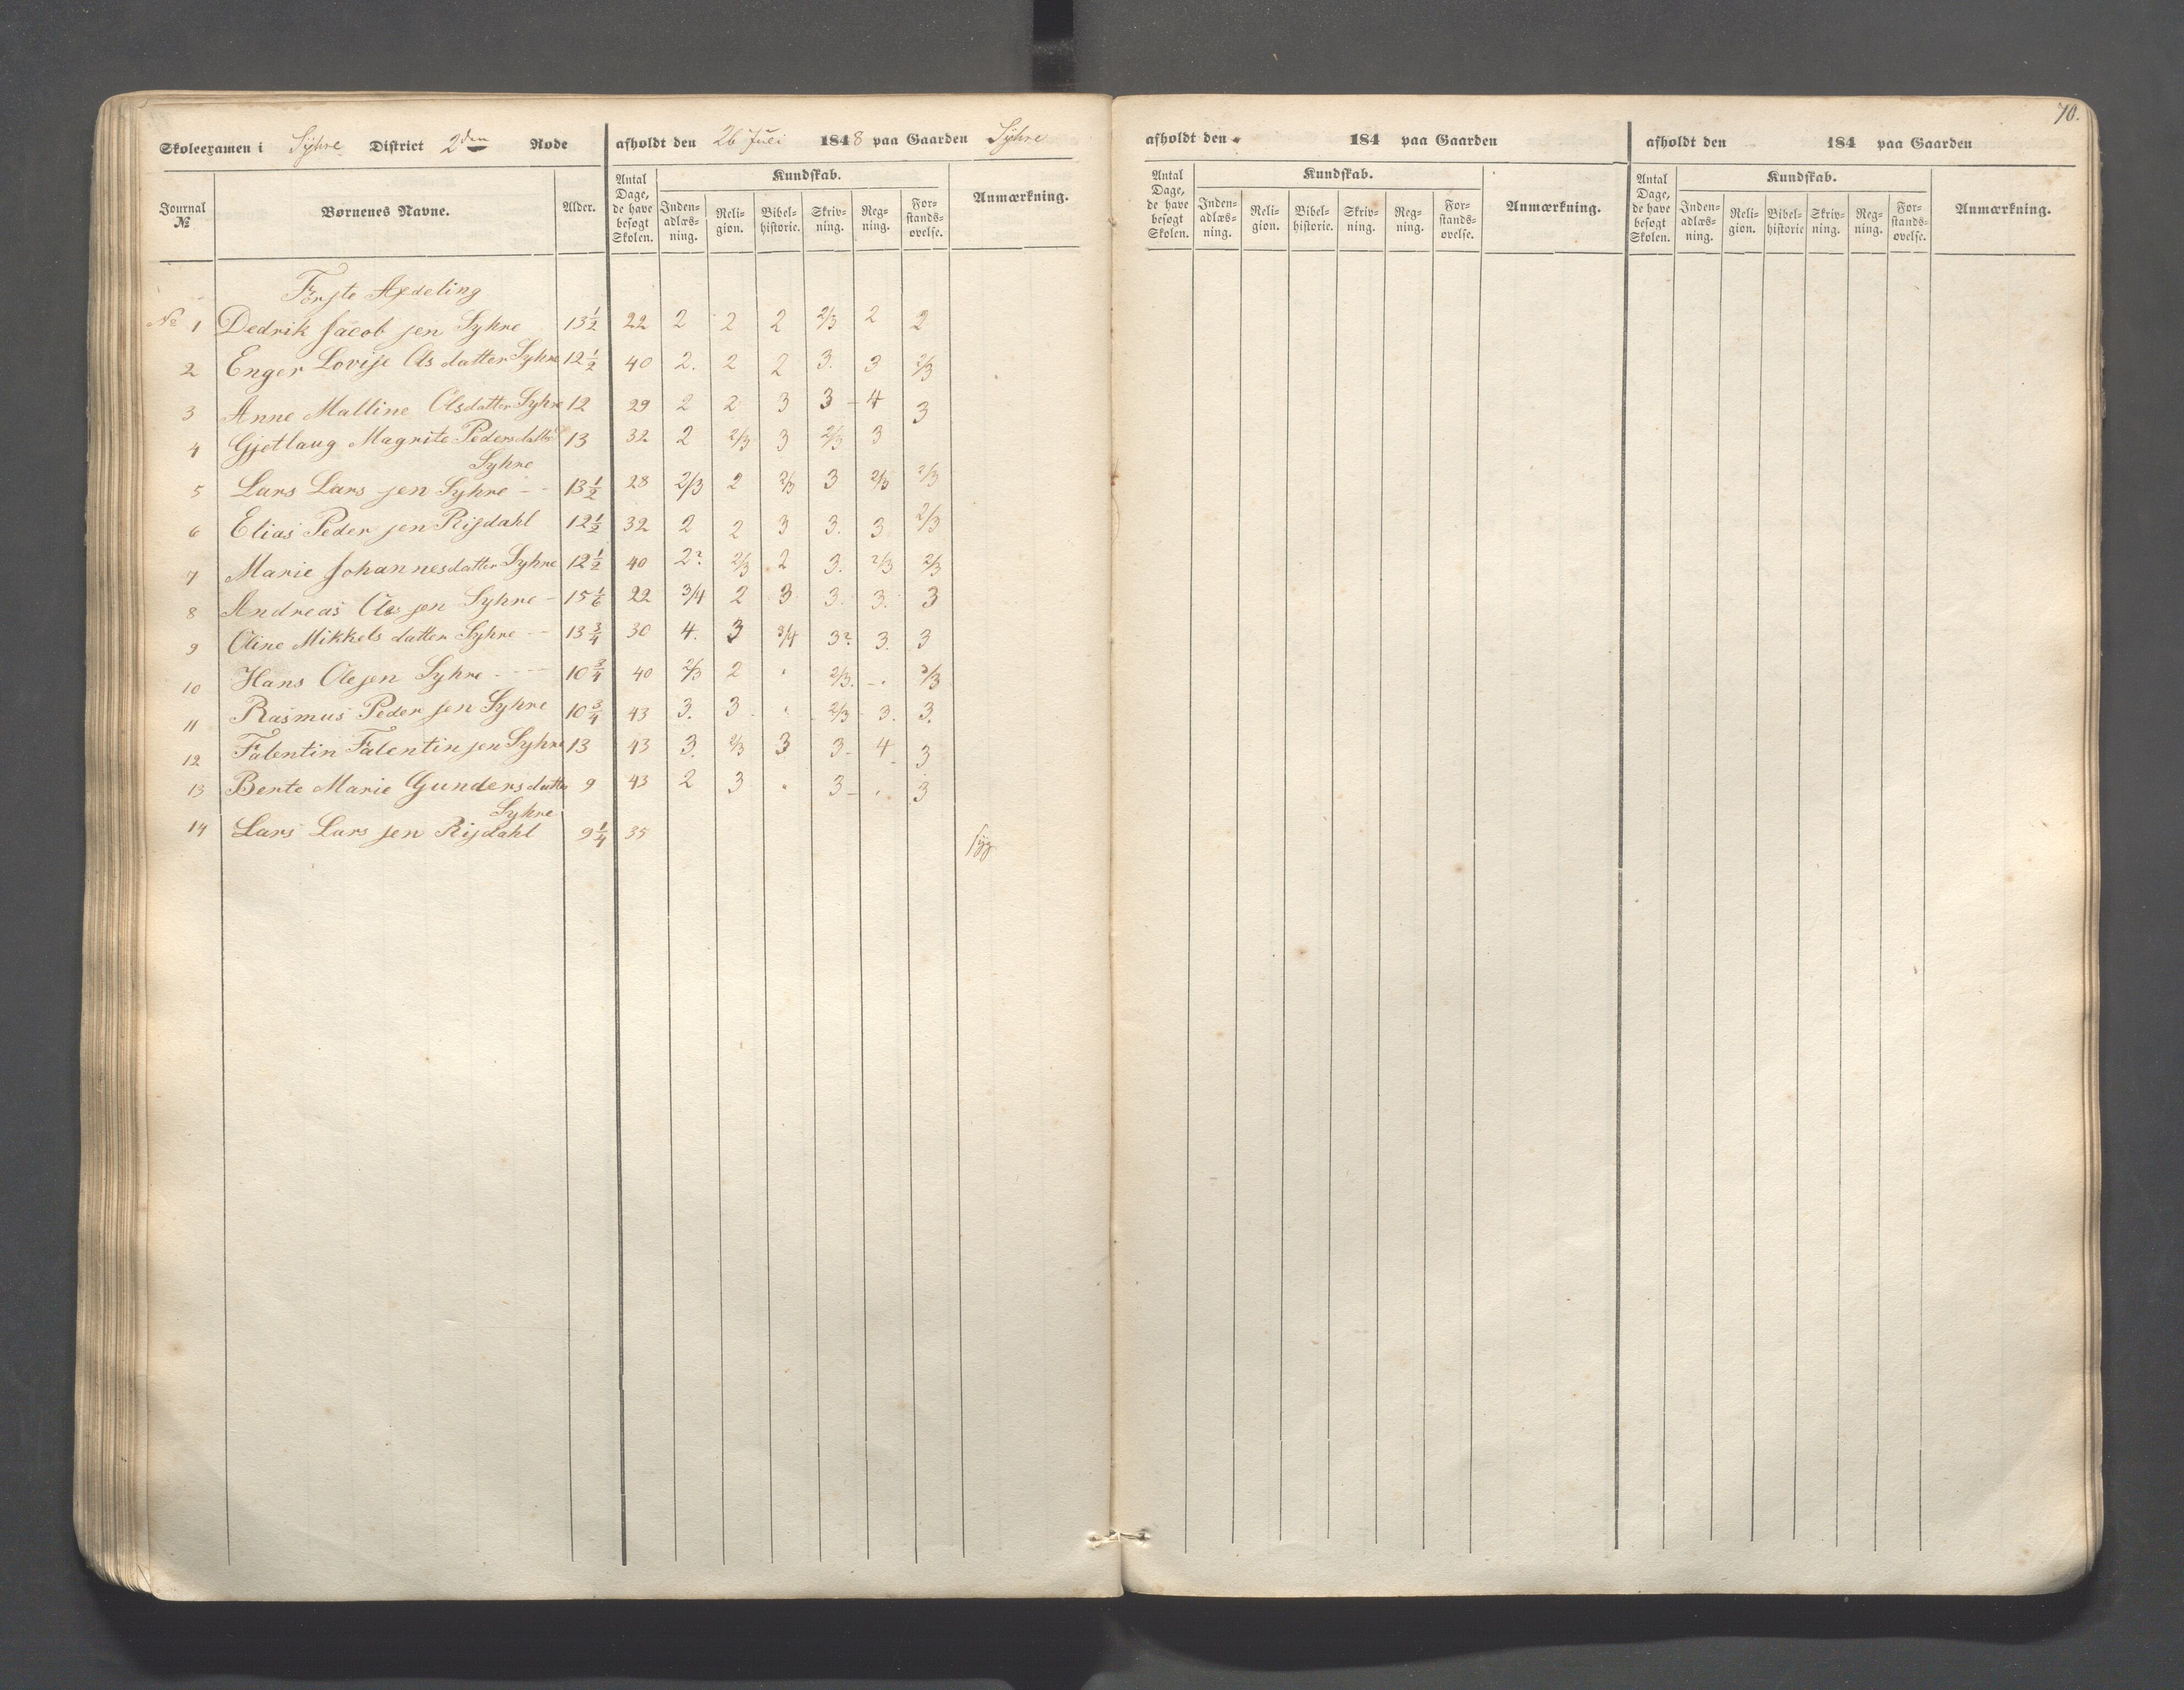 70.
Skoleexamen i Syhre District 2den Rode afholdt den 26 Juli 1848 paa Gaarden Syhre
Journal № Børnenes Navne. Alder. Antal Dage, de have besøgt Skolen. Kundskab. Inden-adlæs-ning. Reli-gion. Bibel-historie. Skriv-ning. Reg-ning. For-stands-øvelse. Anmærkning.
Førſte Afdeling
№ 1 Dedrik Jacobſen Syhre 13½ 22 2 2 2 2/3 2 2
2 Enger Loviſe Olsdatter Syhre 12½ 40 2. 2 2 3. 3 2/3
3 Anne Malline Olsdatter Syhre 12 29 2 2 3 3 - 4 3
4 Gjetlaug Magrite Pedersdatter 13 32 2 2/3 3 2/3 3
Syhre
5 Lars Larsſen Syhre - - 13½ 28 2/3 2 2/3 3 2/3 2/3
6 Elias Pederſen Risdahl 12½ 32 2 2 3 3. 3 2/3
7 Marie Johannesdatter Syhre 12½ 40 2? 2/3 2 3. 2/3 2/3
8 Andreas Olsſen Syhre - 15 1/6 22 3/4 2 3 3. 3. 3
9 Oline Mikkelsdatter Syhre - - 13¾ 30 4. 3 3/4 3? 3. 3
10 Hans Oleſen Syhre - - - - 10¾ 40 2/3 2 " 2/3. - . 2/3
11 Rasmus Pederſen Syhre 10¾ 43 3. 3 " 2/3 3. 3.
12 Falentin Falentinſen Syhre 13 43 3. 2/3 3 3 - 4 3
13 Berte Marie Gundersdatter 9 43 2 3 " 3 - " 3
Syhre
14 Lars Larsſen Risdahl 9¼ 35 ſyg
afholdt den 184 paa Gaarden
Antal Dage, de have besøgt Skolen. Kundskab. Inden-adlæs-ning. Reli-gion. Bibel-historie. Skriv-ning. Reg-ning. For-stands-øvelse. Anmærkning.
afholdt den 184 paa Gaarden
Antal Dage, de have besøgt Skolen. Kundskab. Inden-adlæs-ning. Reli-gion. Bibel-historie Skriv-ning. Reg-ning. For-stands-øvelse. Anmærkning.